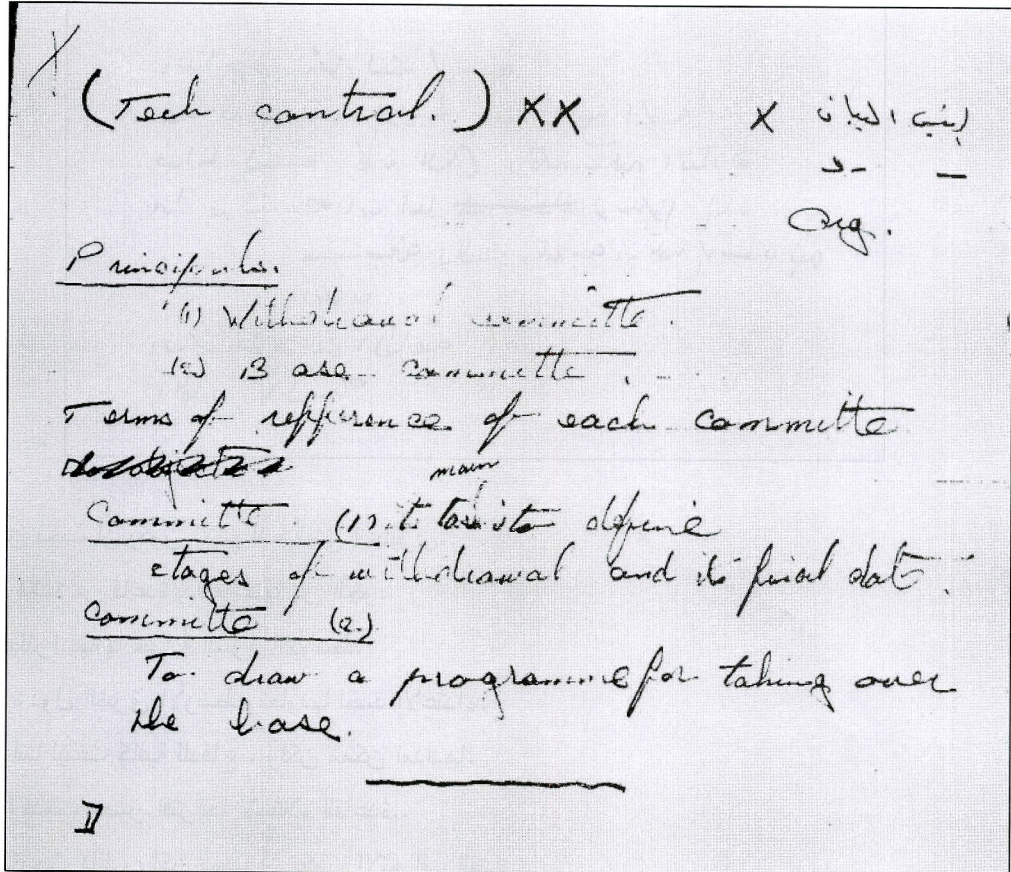 (Tech control.) XX X
Org.
Principals.
(1) Withdrawal committe.
(2) Base committe.
Terms of refference of each committe
main
Committe (1) its task is to define
stages of withdrawal and its final date.
committe (2.)
To draw a programme for taking over
the base.